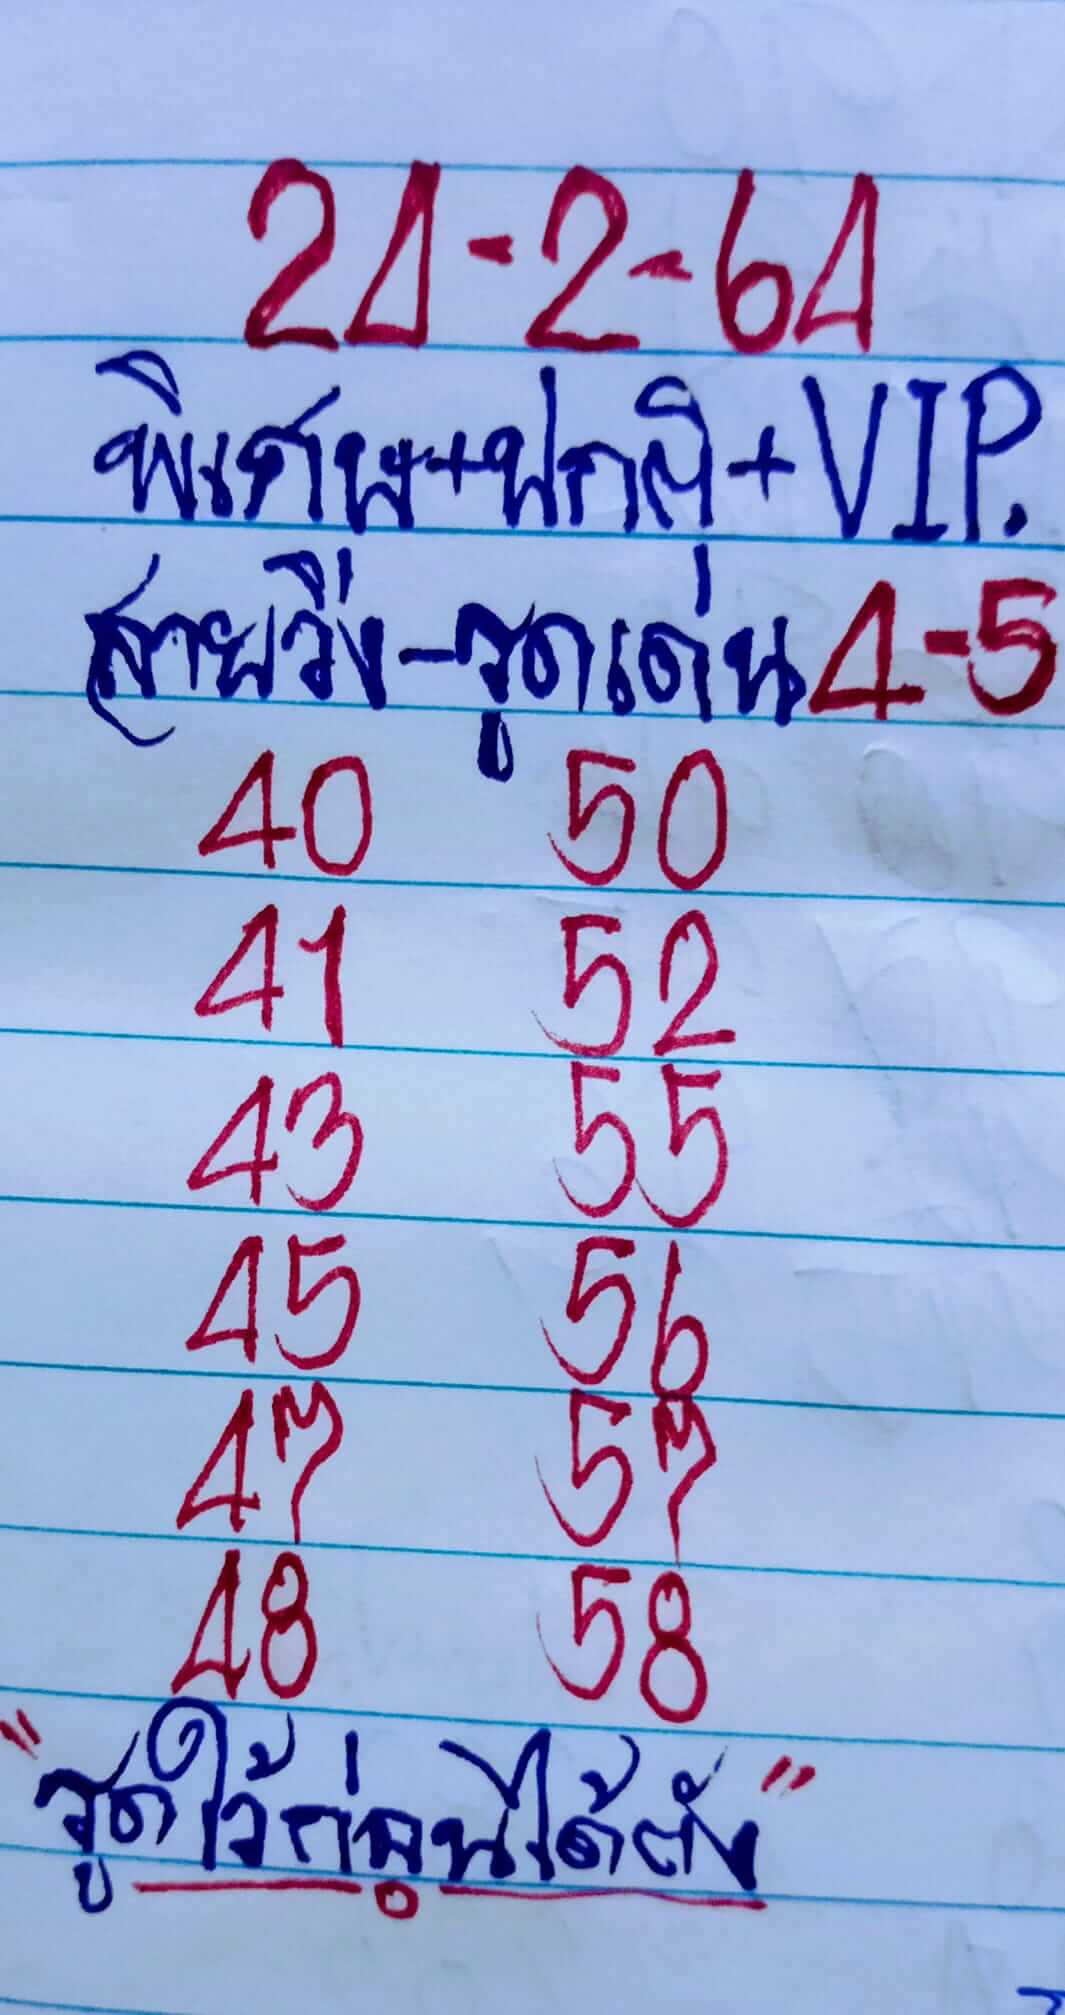 24-2-64
พิเศษ+ปกติ+VIP.
สายวิ่ง-รูดเด่น 4-5
40 50
41 52
43 55
45 56
47 57
48 58
"รูดไว้ก่อนได้ตัง"